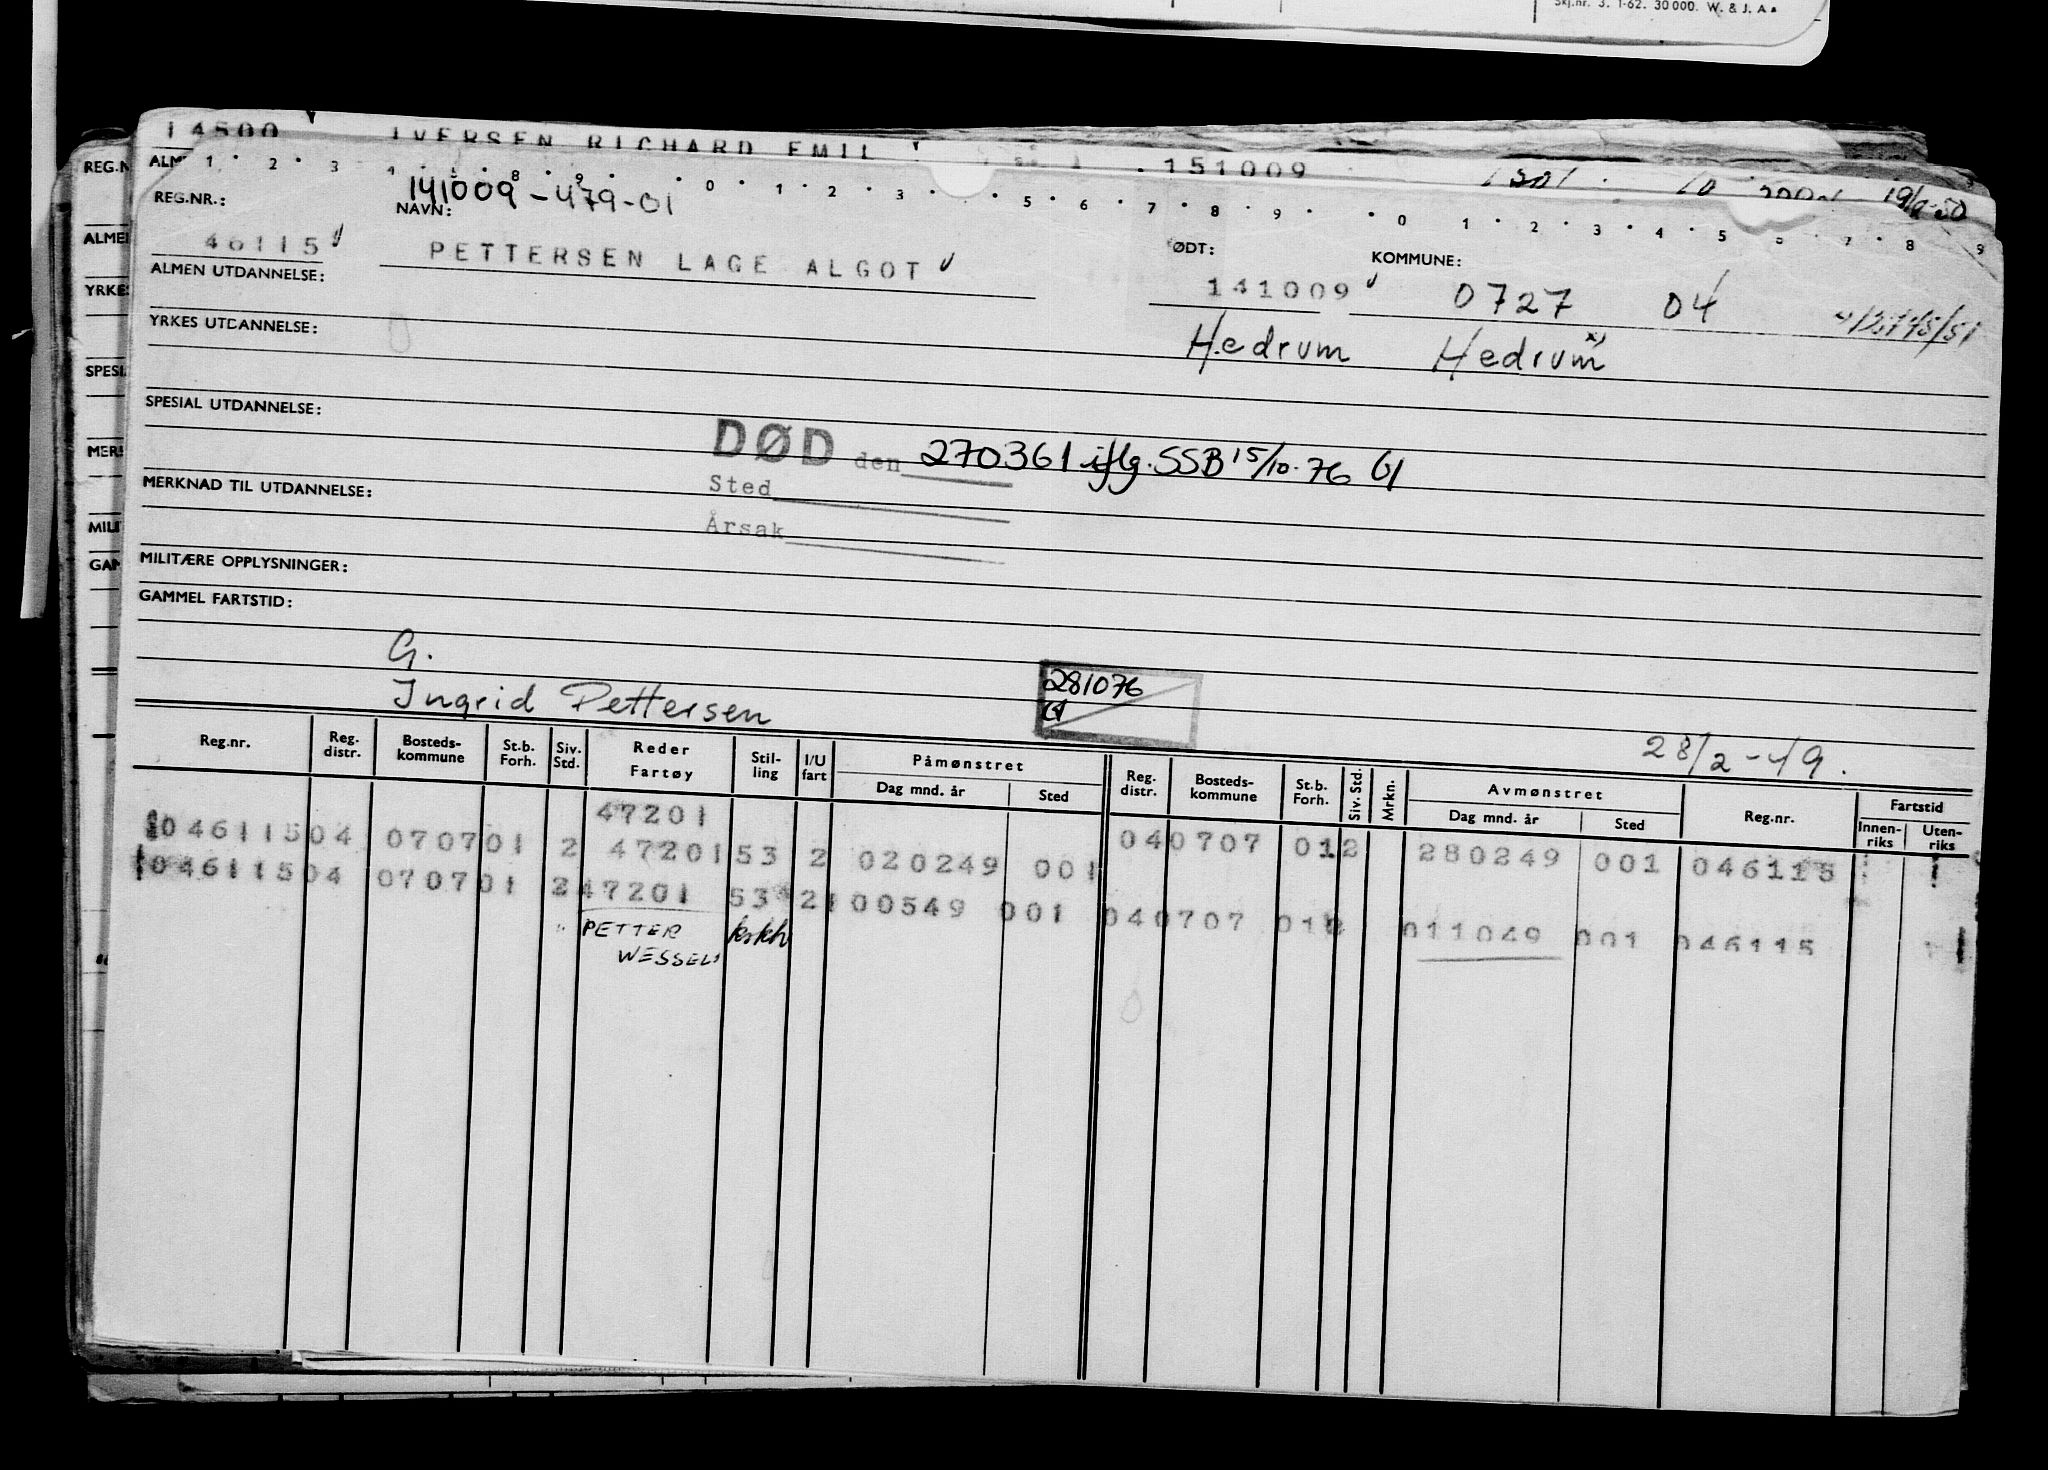 Skj.nr. 3. 1-62. 30 000. W. & J. A.
14500 IVERSEN RICHARD EMIL 151009
REG.NR.: NAVN: 141009-479-01 ØDT: KOMMUNE:
46115 PETTERSEN LAGE ALGOT 141009 0727 04
Hedrum Hedrum x)
ALMEN UTDANNELSE:
YRKES UTDANNELSE:
SPESIAL UTDANNELSE:
DØD den 270361 iflg. SSB 15/10-76
Sted
MERKNAD TIL UTDANNELSE:
Årsak
MILITÆRE OPPLYSNINGER:
GAMMEL FARTSTID:
G.
Ingrid Pettersen
281076
28/2-49.
Reg.nr. Reg. distr. Bosteds-kommune St.b. Forh. Siv. Std. Reder Fartøy Stil-ling I/U fart Påmønstret Dag mnd. år Sted Reg. distr. Bosteds-kommune St.b. Forh. Siv. Std. Mrkn. Avmønstret Dag mnd. år Sted Reg.nr. Fartstid Innen-riks Uten-riks
47201
046115 04 0707 01 2 47201 53 2 020249 001 04 0707 01 2 280249 001 046115
046115 04 0707 01 2 47201 53 2 100549 001 04 0707 01 2 011049 001 046115
PETTER kskh
WESSEL